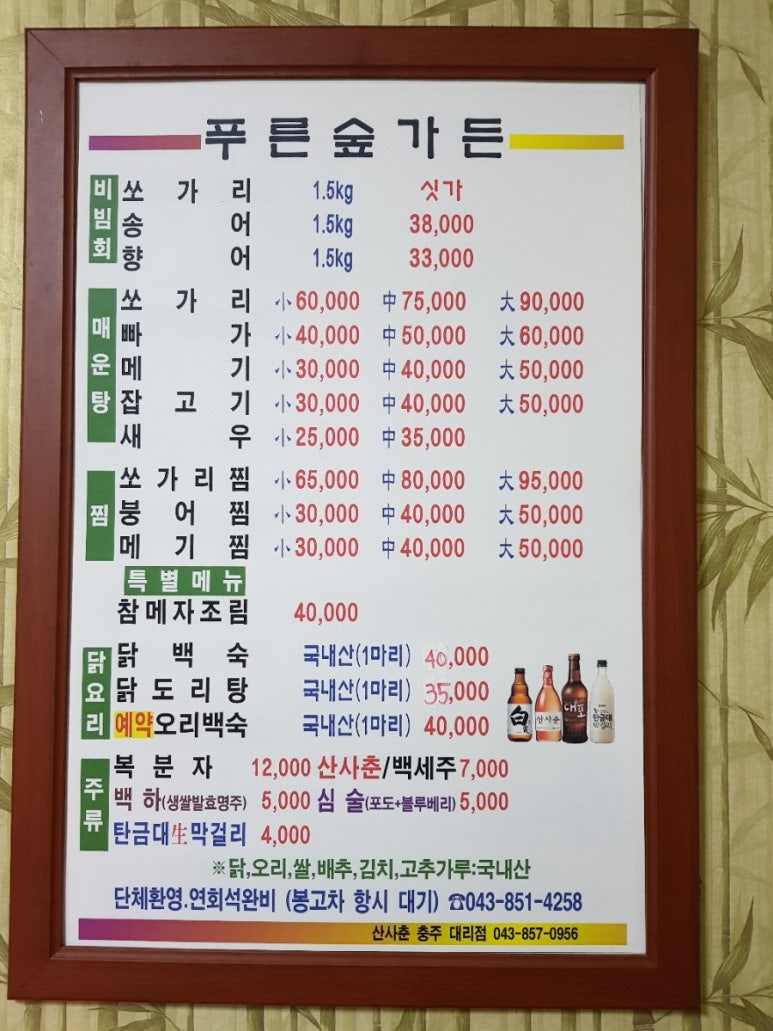 푸른숲가든
비빔회
쏘가리 1.5kg 싯가
송어 1.5kg 38,000
향어 1.5kg 33,000
매운탕
쏘가리 小 60,000 中 75,000 大 90,000
빠가 小 40,000 中 50,000 大 60,000
메기 小 30,000 中 40,000 大 50,000
잡고기 小 30,000 中 40,000 大 50,000
새우 小 25,000 中 35,000
찜
쏘가리찜 小 65,000 中 80,000 大 95,000
붕어찜 小 30,000 中 40,000 大 50,000
메기찜 小 30,000 中 40,000 大 50,000
특별메뉴
참메자조림 40,000
닭요리
닭백숙 국내산(1마리) 40,000
닭도리탕 국내산(1마리) 35,000
예약오리백숙 국내산(1마리) 40,000
白
산사춘
대포
탄금대
주류
복분자 12,000 산사춘/백세주 7,000
백하(생쌀발효명주) 5,000 심술(포도+블루베리) 5,000
탄금대生막걸리 4,000
※닭,오리,쌀,배추,김치,고추가루:국내산
단체환영.연회석완비 (봉고차 항시 대기) ☎043-851-4258
산사춘 충주 대리점 043-857-0956